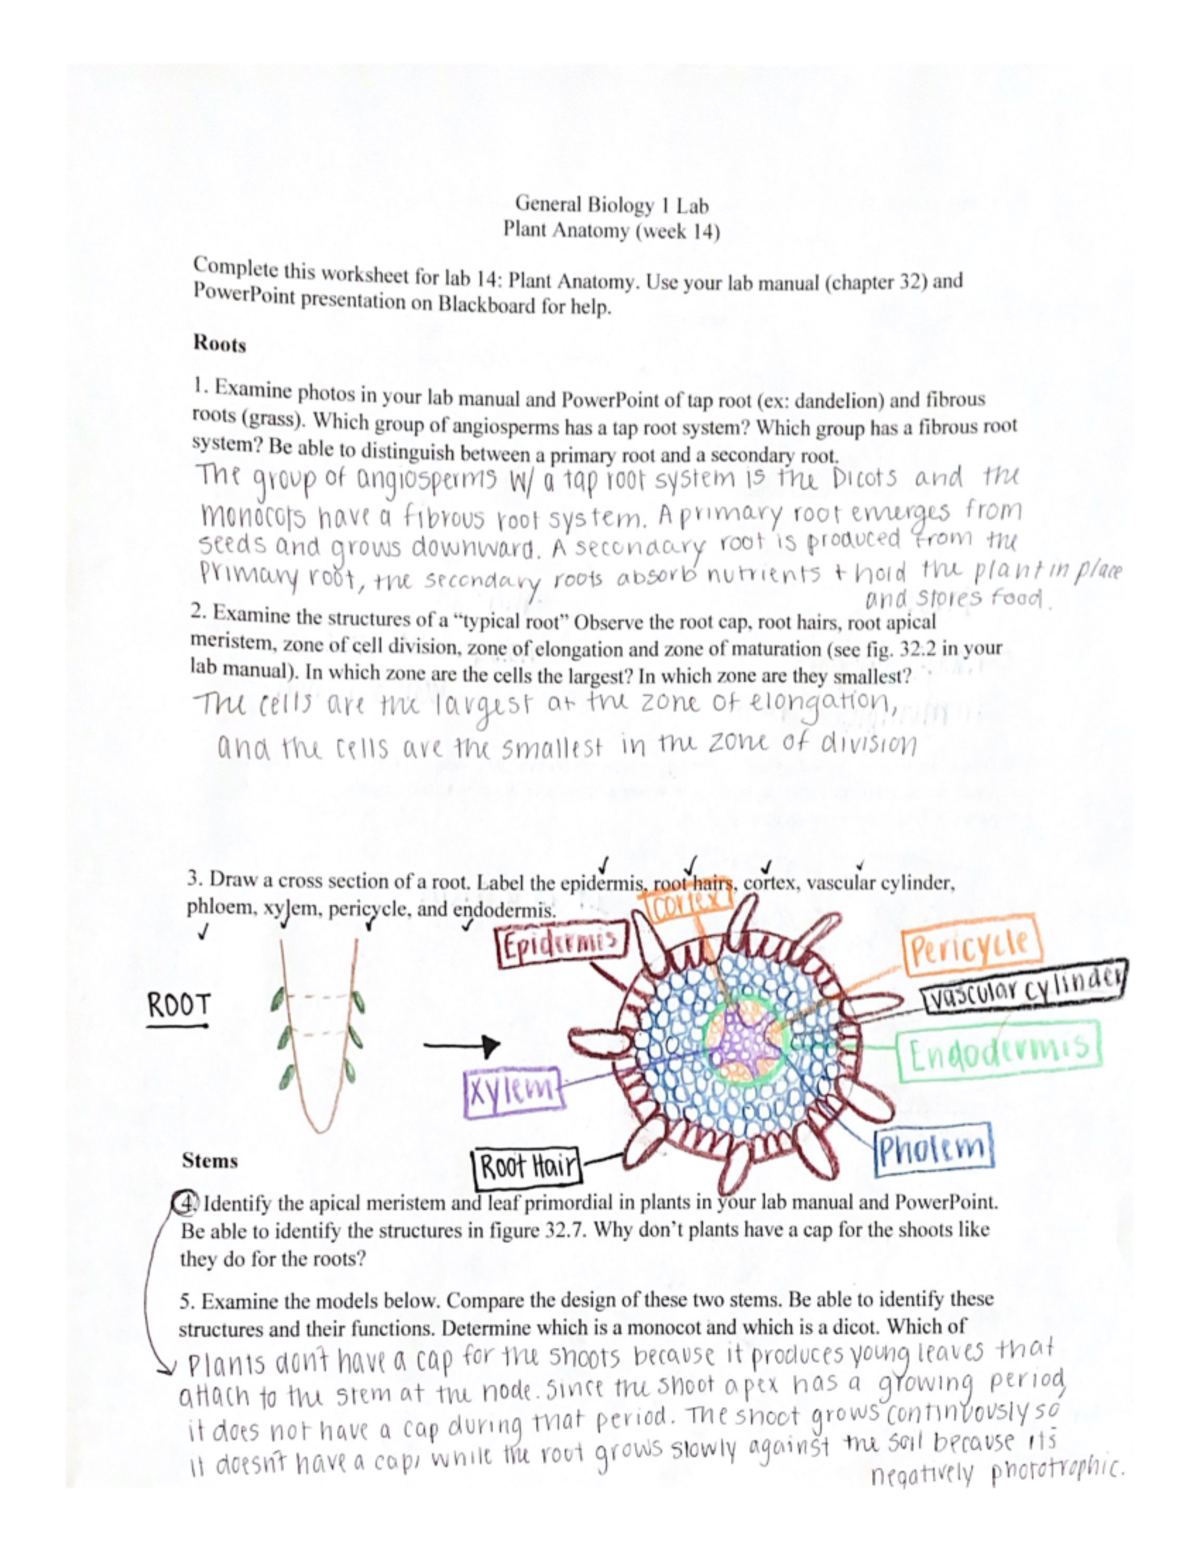 General Biology 1 Lab
Plant Anatomy (week 14)
Complete this worksheet for lab 14: Plant Anatomy. Use your lab manual (chapter 32) and
PowerPoint presentation on Blackboard for help.
Roots
1. Examine photos in your lab manual and PowerPoint of tap root (ex: dandelion) and fibrous
roots (grass). Which group of angiosperms has a tap root system? Which group has a fibrous root
system? Be able to distinguish between a primary root and a secondary root.
The group of angiosperms w/ a tap root system is the Dicots and the
monocots have a fibrous root system. A primary root emerges from
seeds and grows downward. A secondary root is produced from the
primary root, the secondary roots absorb nutrients + hold the plant in place
and stores food.
2. Examine the structures of a “typical root” Observe the root cap, root hairs, root apical
meristem, zone of cell division, zone of elongation and zone of maturation (see fig. 32.2 in your
lab manual). In which zone are the cells the largest? In which zone are they smallest?
The cells are the largest at the zone of elongation,
and the cells are the smallest in the zone of division
3. Draw a cross section of a root. Label the epidermis, root hairs, cortex, vascular cylinder,
phloem, xylem, pericycle, and endodermis.
Cortex
Epidermis
Pericycle
Vascular cylinder
ROOT
Endodermis
Xylem
Pholem
Root Hair
Stems
4. Identify the apical meristem and leaf primordial in plants in your lab manual and PowerPoint.
Be able to identify the structures in figure 32.7. Why don’t plants have a cap for the shoots like
they do for the roots?
5. Examine the models below. Compare the design of these two stems. Be able to identify these
structures and their functions. Determine which is a monocot and which is a dicot. Which of
Plants don't have a cap for the shoots because it produces young leaves that
attach to the stem at the node. Since the shoot apex has a growing period,
it does not have a cap during that period. The shoot grows continuously so
it doesn't have a cap, while the root grows slowly against the soil because its
negatively phototrophic.